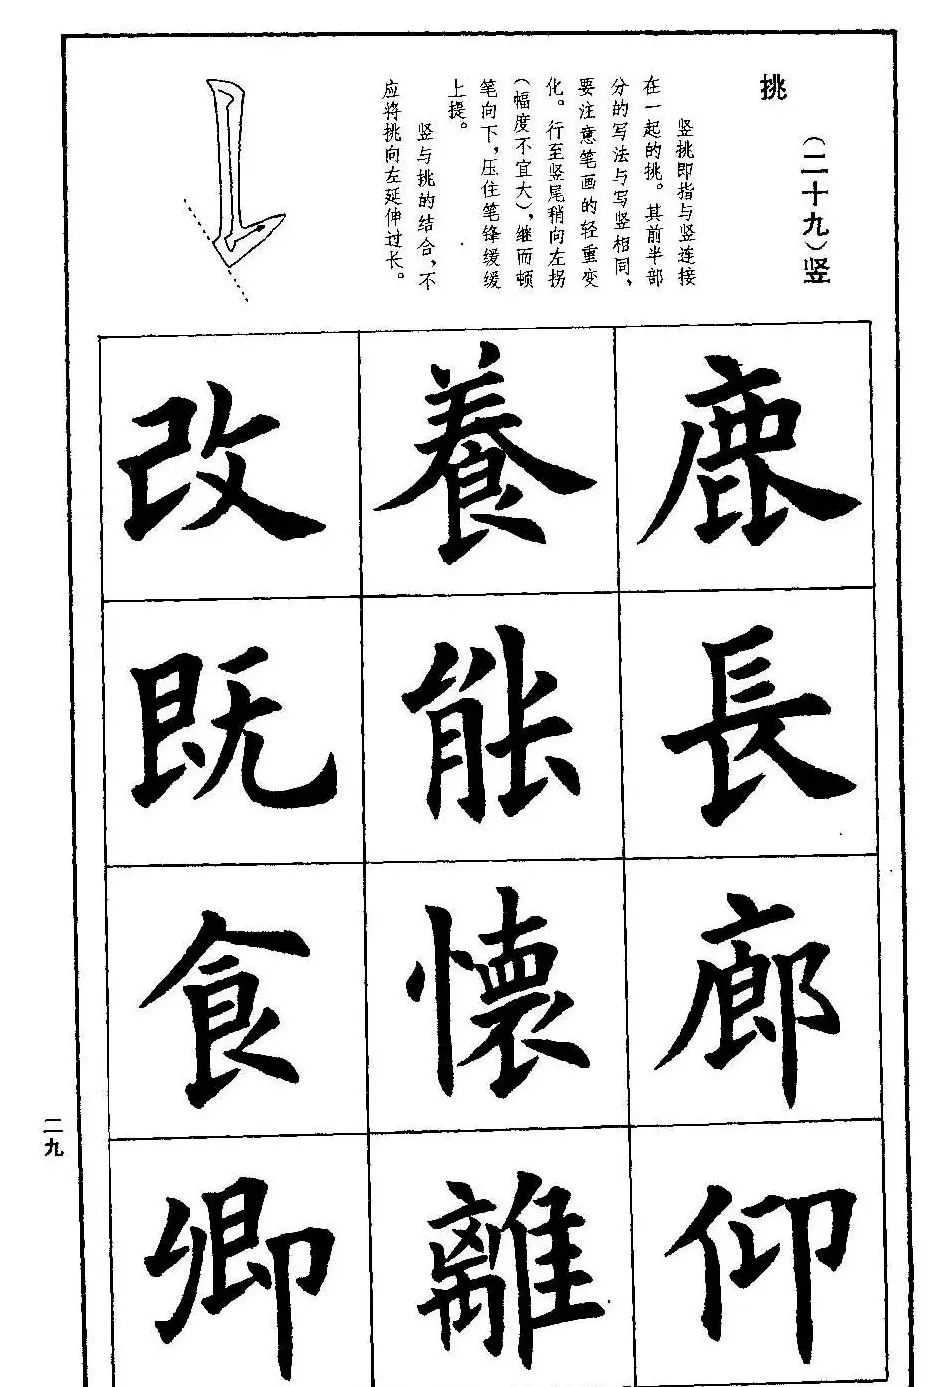 （二十九）竖
挑
竖挑即指与竖连接
在一起的挑。其前半部
分的写法与写竖相同，
要注意笔画的轻重变
化。行至竖尾稍向左拐
（幅度不宜大），继而顿
笔向下，压住笔锋缓缓
上提。
竖与挑的结合，不
应将挑向左延伸过长。
鹿
長
廊
仰
養
能
懷
離
改
既
食
卿
二九